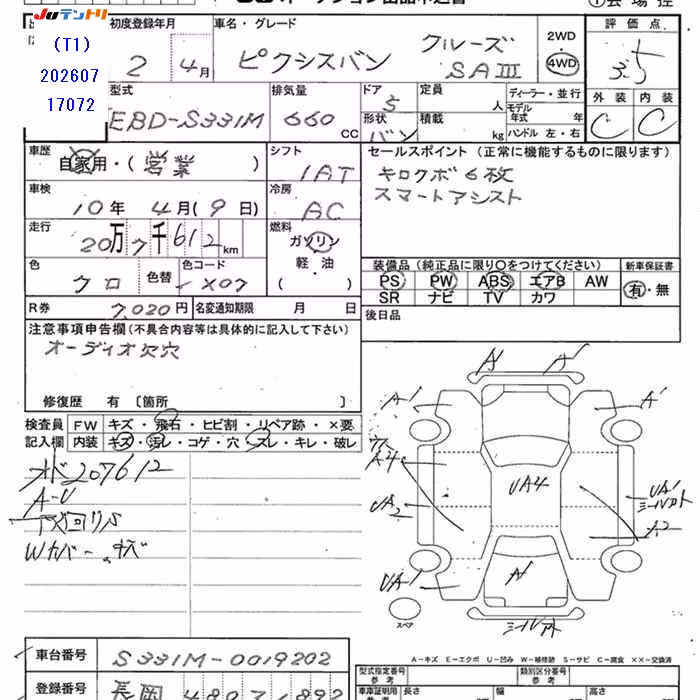 JUテントリ
(T1)
202607
17072
初度登録年月
2年 4月
車名・グレード
ピクシスバン クルーズ
SAIII
2WD
4WD
評価点
3.5
外装 内装
C C
型式
EBD-S331M
排気量
660 CC
ドア
5
形状
バン
定員
人
積載
kg
ディーラー・並行
モデル
年式 年
ハンドル 左・右
車歴
自家用・(営業)
シフト
IAT
セールスポイント (正常に機能するものに限ります)
キロクボ6枚
スマートアシスト
車検
10年 4月(9日)
冷房
AC
走行
20万7千612km
燃料
ガソリン
軽・油
( )
色
クロ
色替
色コード
X07
装備品(純正品に限り○をつけてください)
PS PW ABS エアB AW
SR ナビ TV カワ
新車保証書
有・無
R券
7,020円
名変通知期限 月 日
後日品
注意事項申告欄(不具合内容等は具体的に記入して下さい)
オーディオ欠穴
修復歴 有〔箇所 〕
検査員
記入欄
FW キズ・飛石・ヒビ割・リペア跡・×要
内装 キズ・汚レ・コゲ・穴・スレ・キレ・破レ
207612
A-U
Wカバー キズ
A A
A1 A1
A4
UA4
UA2
UA1
A2
UA1
A
スペア
A-キズ E-エクボ U-凹み W-補修跡 S-サビ C-腐食 XX-交換済
車台番号
S331M-0019202
登録番号
長岡 480
型式指定番号
類別区分番号
参考
長さ
幅
高さ